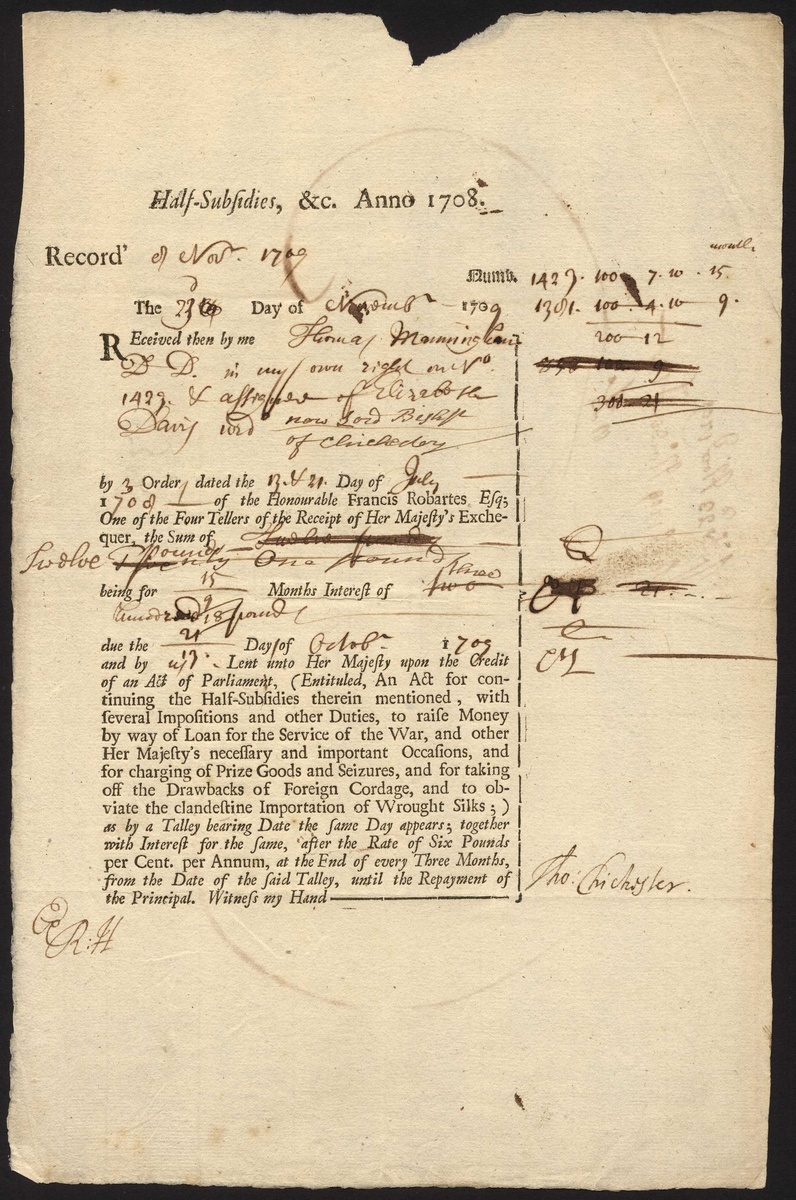 Half-Subſidies, &c. Anno 1708.
Record' 8 Novr. 1709
month.
Numb. 1423. 100 7. 10 . 15.
The Day of Novembr 1709 1381. 100. 4. 10 9.
REceived then by me Thomas Manningham 200 12
D D. in my own right on No.
1423. & assignee of Elizabeth 300 21
Davis now Lord Bishop
of Chichester
by 3 Orders dated the 13. & 21. Day of July
1708 of the Honourable Francis Robartes Eſq;
One of the Four Tellers of the Receipt of Her Majeſty's Exche-
quer, the Sum of Twelve pounds
Twelve pounds Twenty One pounds
being for 15 9 Months Interest of two three
hundred pounds 21
due the 21 13 Day of Octobr 1709
and by Lent unto Her Majeſty upon the Credit
of an Act of Parliament, (Entituled, An Act for con-
tinuing the Half-Subſidies therein mentioned, with
ſeveral Impoſitions and other Duties, to raiſe Money
by way of Loan for the Service of the War, and other
Her Majeſty's neceſſary and important Occaſions, and
for charging of Prize Goods and Seizures, and for taking
off the Drawbacks of Foreign Cordage, and to ob-
viate the clandeſtine Importation of Wrought Silks;)
as by a Talley bearing Date the ſame Day appears; together
with Intereſt for the ſame, after the Rate of Six Pounds
per Cent. per Annum, at the End of every Three Months,
from the Date of the ſaid Talley, until the Repayment of
the Principal. Witneſs my Hand
Tho: Chichester.
Ex
R: H